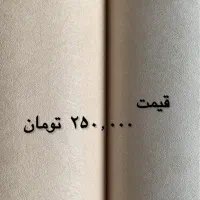 قیمت
۲۵۰,۰۰۰ تومان